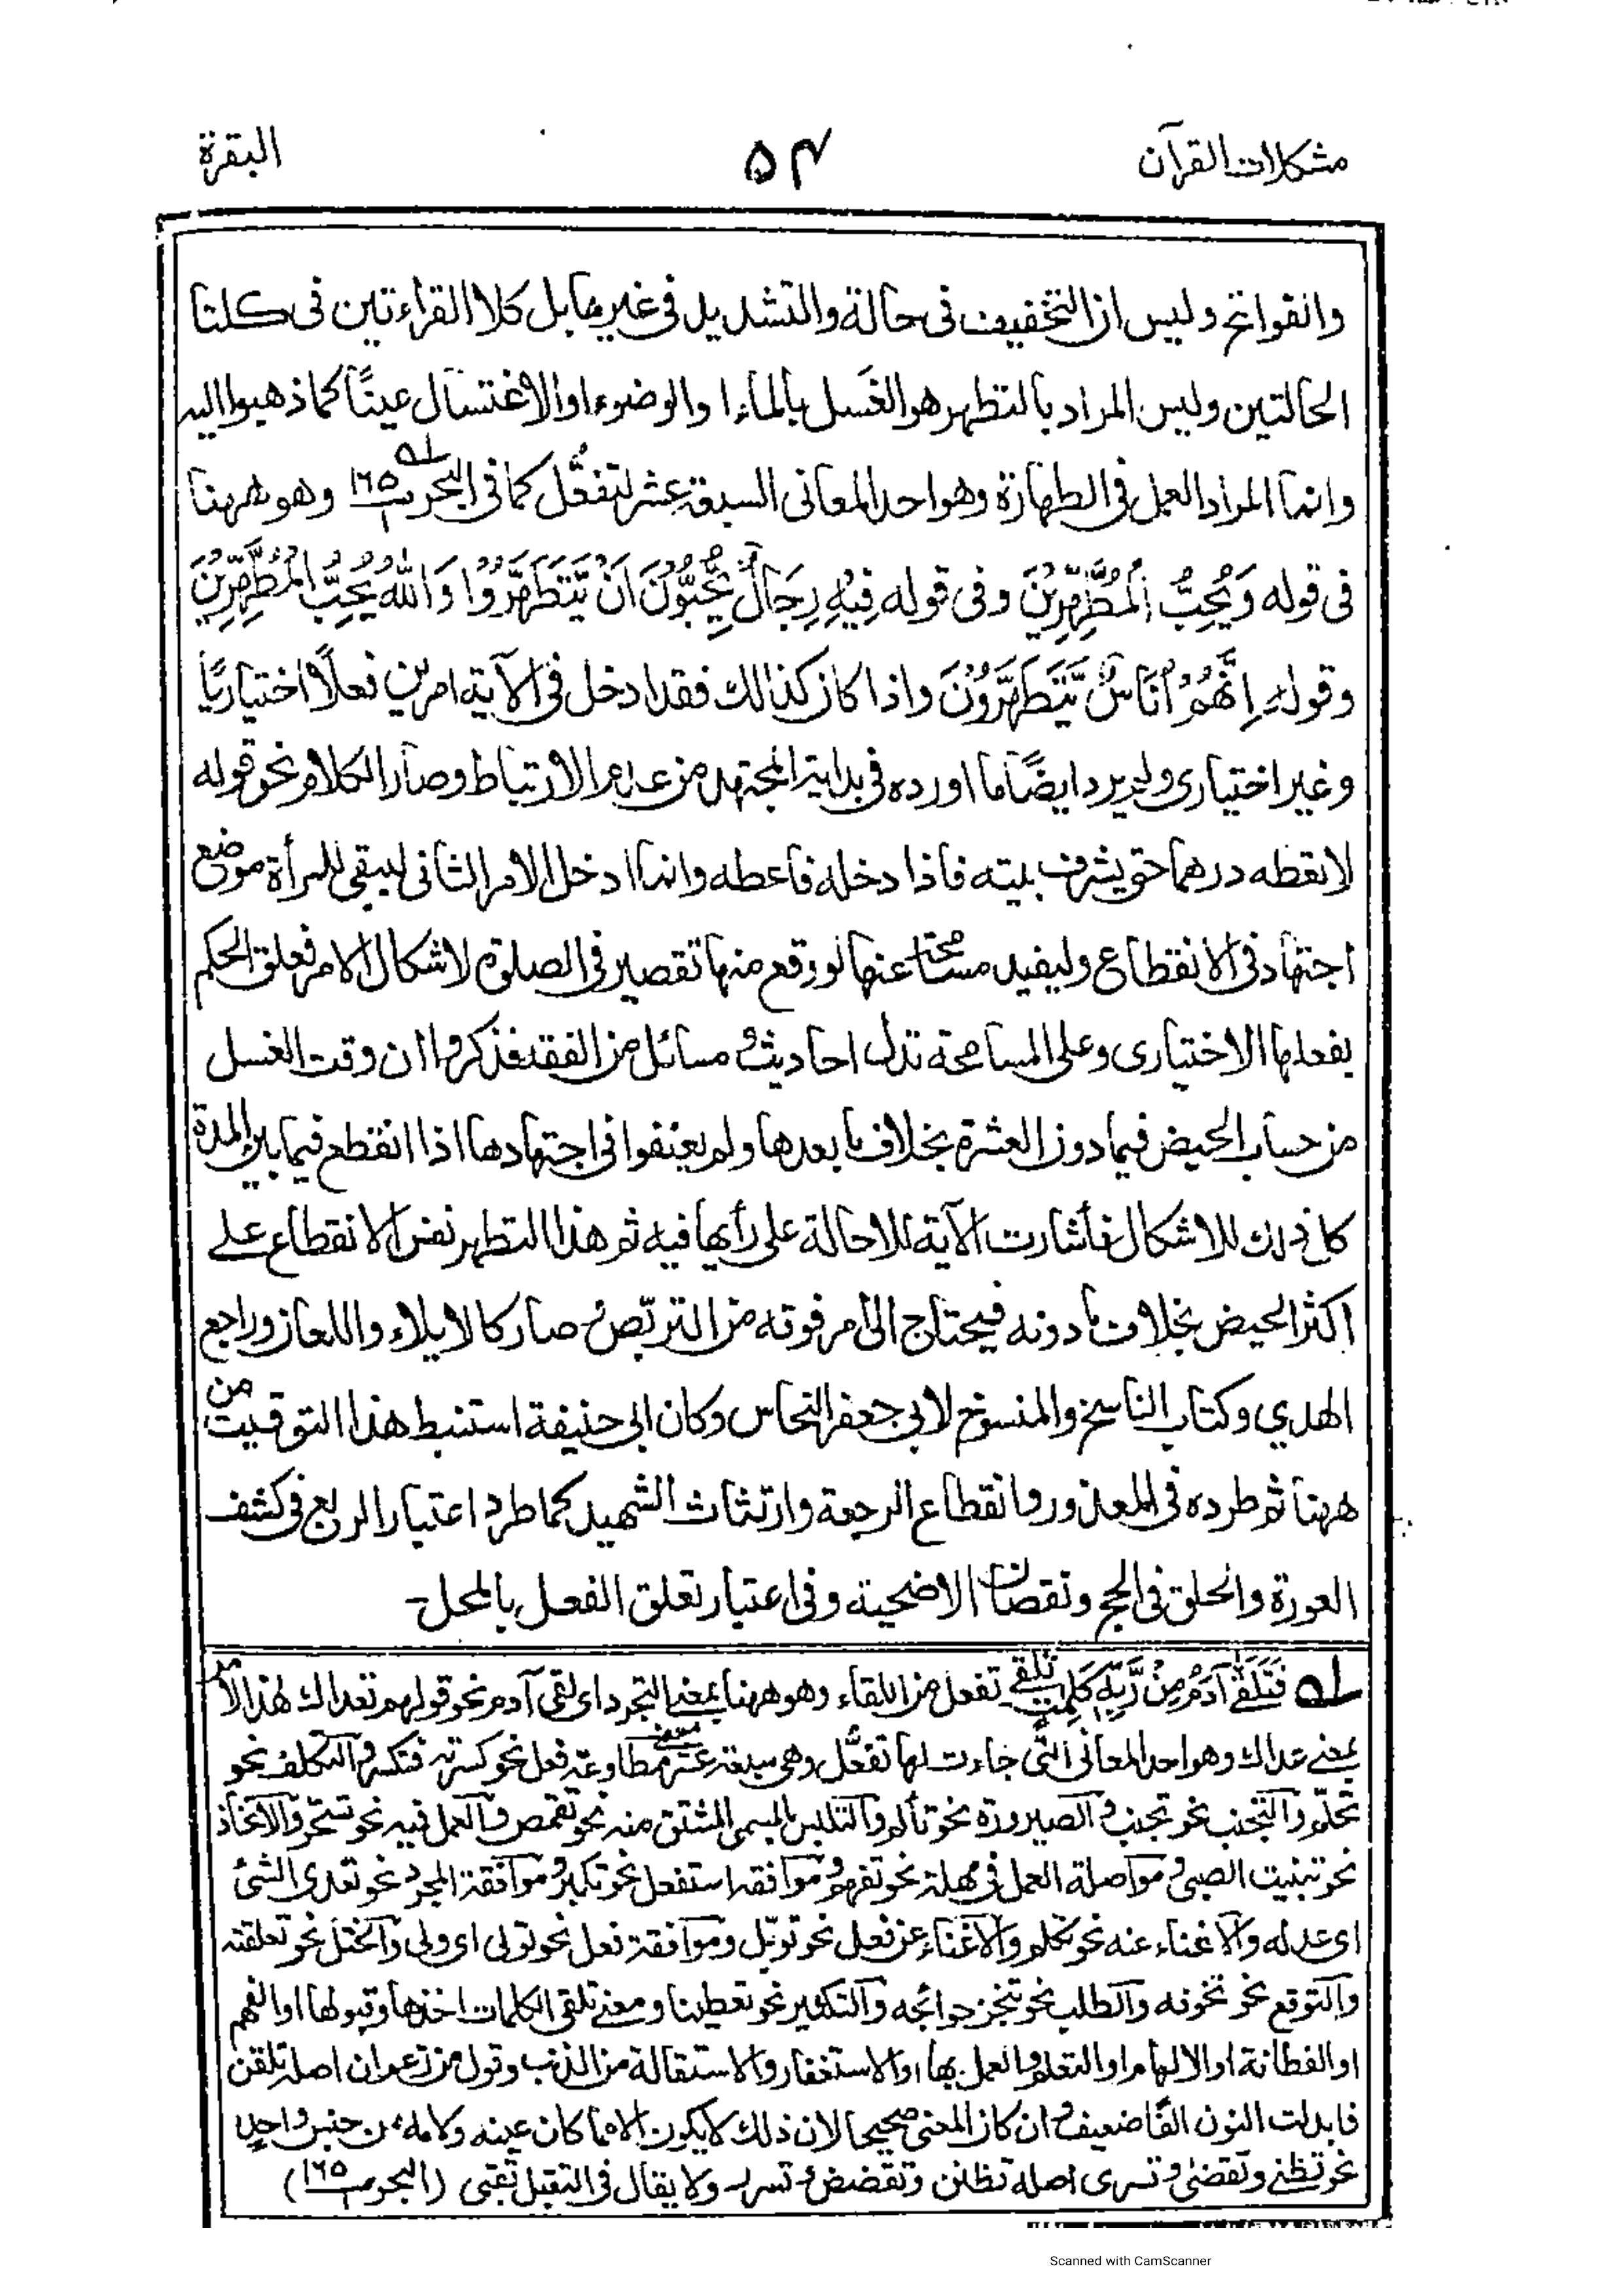 مشكلات القرآن
۵۴
البقرة
وانفواتح وليس ان التخفيف فى حالة والتشديد فى غيرها بل كلا القراءتين فى كلتا
الحالتين وليس المراد بالتطهر هو الغسل بالماء او الوضوء او الاغتسال عينًا كما ذهبوا اليه
وانما المراد العمل فى الطهارة وهو احد المعانى السبعة عشر لتفعّل كما فى البحر ١٦٥ وهو ههنا
فى قوله وَيُحِبُّ الْمُتَطَهِّرِيْنَ وفى قوله فِيْهِ رِجَالٌ يُّحِبُّوْنَ اَنْ يَّتَطَهَّرُوْا وَاللّٰهُ يُحِبُّ الْمُطَّهِّرِيْنَ
وقوله اِنَّهُمْ اُنَاسٌ يَّتَطَهَّرُوْنَ واذا كان كذالك فقد ادخل فى الآية امرين فعلًا اختياريًا
وغير اختيارى ولم يرد ايضًا ما اورده فى بداية المجتهد من عدم الارتباط وصار الكلام نحو قوله
لا تعطه درهما حتى يشرف بيته فاذا دخله فاعطه وانما ادخل الامر الثانى ليبقى للمرأة موضع
اجتهاد فى الانقطاع وليفيد مسامحة عنها لو وقع منها تقصير فى الصلوة لاشكال الامر فعلق الحكم
بفعلها الاختيارى وعلى المسامحة تدل احاديث و مسائل من الفقه فذكروا ان وقت الغسل
من حساب الحيض فيما دون العشرة بخلاف ما بعدها ولم يعنفوا فى اجتهادها اذا انقطع فيما بين المدة
كان ذلك للاشكال فأشارت الآية للاحالة على رأيها فيه ثم هذا التطهر نفس الانقطاع على
اكثر الحيض بخلاف ما دونه فيحتاج الى امر فوته من التربّص صار كالايلاء واللعان وراجع
الهدي وكتاب الناسخ والمنسوخ لابى جعفر النحاس وكان ابى حنيفة استنبط هذا التوقيت من
ههنا ثم طرده فى المعذور وانقطاع الرجعة وارتثاث الشهيد كما طرد اعتبار الربع فى كشف
العورة والحلق فى الحج ونقصان الاضحية وفى اعتبار تعلق الفعل بالمحل-
له فَتَلَقّٰى آدَمُ مِنْ رَّبِّهٖ كَلِمٰتٍ تلقى تفعل من اللقاء وهو ههنا بمعنى التجرد اى لقى آدم نحو قولهم تعداك هذا الامر
بمعنى عداك وهو احد المعانى التى جاءت لها تفعّل وهى سبعة عشر معنى مطاوعة فعل نحو كسرته فتكسر والتكلف نحو
تحلّم والتجنب نحو تجنب والصيرورة نحو تألم والتلبس بالمسمى المشتق منه نحو تقمص والعمل فيه نحو تسحر والاتخاذ
نحو تبنيت الصبى ومواصلة العمل فى مهلة نحو تفهم وموافقة استفعل نحو تكبر وموافقة المجرد نحو تعدى الشئ
اى عداه والاغناء عنه نحو تكلم والاغناء عن فعل نحو تويّل وموافقة فعل نحو تولى اى ولى والختل نحو تعلقته
والتوقع نحو تخوفه والطلب نحو تنجز حوائجه والتكثير نحو تعطينا ومعنى تلقى الكلمات اخذها وقبولها او الفهم
او الفطانة او الالهام او التعلم والعمل بها او الاستغفار والاستقالة من الذنب وقول من زعم ان اصله تلقن
فابدلت النون الفًا ضعيف وان كان المعنى صحيحا لان ذلك لا يكون الا مما كان عينه ولامه من جنس واحد
نحو تظنى وتقضى وتسرى اصله تظنن وتقضض وتسرر ولا يقال فى التقبل تقبى (البحر ١٦٥)
Scanned with CamScanner